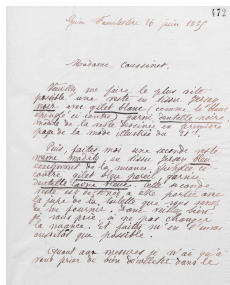 172
16 juin 1885
Madame Coussinet.
Veuillez me faire le plus vite
possible une veste en tissu
noir avec gilet blanc (comme le blanc
ci contre) garni dentelle noire
modèle de la veste dessinée en dernière
page de la mode illustrée du 21
Puis, faites moi une seconde veste
même modèle en tissu bleu
de la nuance ci
contre gilet bleu pareil, garnie
dentelle bleue. Cette seconde
veste est destinée à être portée avec
la jupe de la toilette que vous
fournie. Donc veillez bien,
je vous prie, à ne pas changer
la nuance. Et faites m'en l'envoi
aussitôt que possible.
Quant aux mesures je n'ai qu'à
vous prier de dans le